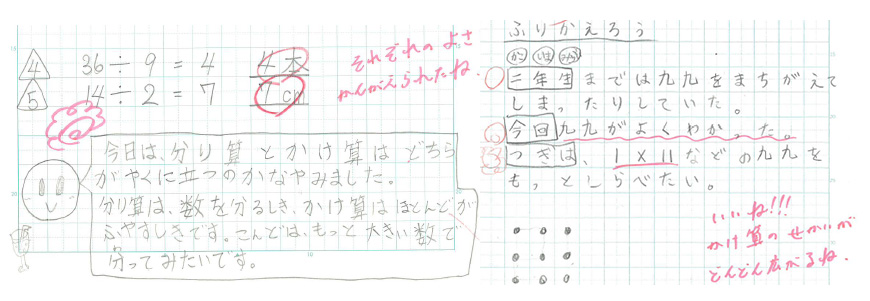 4 36÷9=4 4本
5 14÷2=7 7cm
それぞれのよさ
かんがえられたね。
今日は、分り算とかけ算はどちら
がやくに立つのかなやみました。
分り算は、数を分るしき、かけ算はほとんどが
ふやすしきです。こんどは、もっと大きい数で
分ってみたいです。
ふりかえろう
か は み
二年生までは九九をまちがえて
しまったりしていた。
今回九九がよくわかった。
つぎは、1×11などの九九を
もっとしらべたい。
いいね!!!
かけ算のせかいが
どんどん広がるね。